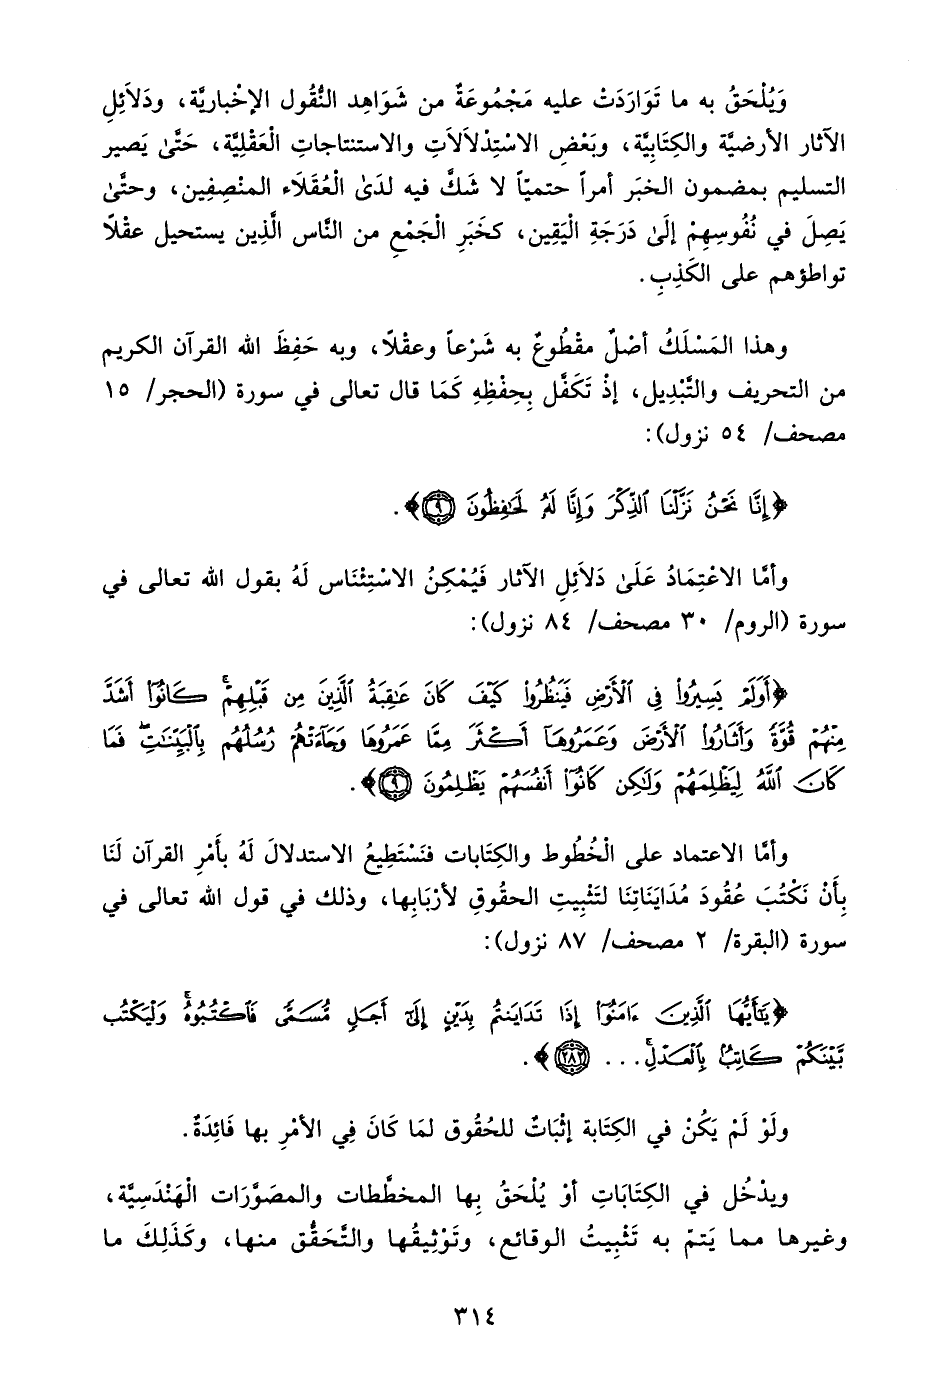 وَيُلْحَقُ به ما تَوَارَدَتْ عليه مَجْمُوعَةٌ من شَوَاهِد النُّقُول الإخْباريَّة، ودَلاَئِلِ
الآثار الأرضيَّة والكِتَابيَّة، وبَعْضِ الاسْتِدْلاَلاَتِ والاستنتاجاتِ الْعَقْليَّة، حَتَّىٰ يَصير
التسليم بمضمون الخبَر أمراً حتميّاً لا شَكَّ فيه لدَىٰ الْعُقَلَاء المنْصِفِين، وحتَّىٰ
يَصِلَ في نُفُوسِهِمْ إلَىٰ دَرَجَةِ الْيَقِين، كخَبَرِ الْجَمْعِ من النَّاس الَّذِين يستحيل عقْلاً
تواطؤهم على الكَذِبِ.
وهذا المَسْلَكُ أصْلٌ مقْطُوعٌ به شَرْعاً وعقْلاً، وبه حَفِظَ الله القرآن الكريم
من التحريف والتَّبْدِيل، إذْ تَكَفَّل بِحِفْظِهِ كَمَا قال تعالى في سورة (الحجر/ ١٥
مصحف/ ٥٤ نزول):
﴿إِنَّا نَحْنُ نَزَّلْنَا ٱلذِّكْرَ وَإِنَّا لَهُۥ لَحَٰفِظُونَ ٩﴾.
وأمَّا الاعْتِمَادُ عَلَىٰ دَلاَئِلِ الآثار فَيُمْكِنُ الاسْتِئْنَاس لَهُ بقول الله تعالى في
سورة (الروم/ ٣٠ مصحف/ ٨٤ نزول):
﴿أَوَلَمْ يَسِيرُوا۟ فِي ٱلْأَرْضِ فَيَنظُرُوا۟ كَيْفَ كَانَ عَٰقِبَةُ ٱلَّذِينَ مِن قَبْلِهِمْ ۚ كَانُوٓا۟ أَشَدَّ
مِنْهُمْ قُوَّةً وَأَثَارُوا۟ ٱلْأَرْضَ وَعَمَرُوهَآ أَكْثَرَ مِمَّا عَمَرُوهَا وَجَآءَتْهُمْ رُسُلُهُم بِٱلْبَيِّنَٰتِ ۖ فَمَا
كَانَ ٱللَّهُ لِيَظْلِمَهُمْ وَلَٰكِن كَانُوٓا۟ أَنفُسَهُمْ يَظْلِمُونَ ٩﴾.
وأمَّا الاعتماد على الْخُطُوط والكِتَابات فنَسْتَطِيعُ الاستدلالَ لَهُ بأَمْرِ القرآن لَنَا
بِأَنْ نَكْتُبَ عُقُودَ مُدَايَنَاتِنَا لتَثْبِيتِ الحقُوقِ لأرْبَابِها، وذلك في قول الله تعالى في
سورة (البقرة/ ٢ مصحف/ ٨٧ نزول):
﴿يَٰٓأَيُّهَا ٱلَّذِينَ ءَامَنُوٓا۟ إِذَا تَدَايَنتُم بِدَيْنٍ إِلَىٰٓ أَجَلٍ مُّسَمًّى فَٱكْتُبُوهُ ۚ وَلْيَكْتُب
بَّيْنَكُمْ كَاتِبٌۢ بِٱلْعَدْلِ ۚ . . . ٢٨٢﴾.
ولَوْ لَمْ يَكُنْ في الكِتَابة إثْبَاتٌ للحُقُوق لمَا كَانَ فِي الأمْرِ بها فَائِدَةٌ.
ويدْخُل في الكِتَابَاتِ أوْ يُلْحَقُ بِها المخطَّطات والمصَوَّرَات الْهَنْدَسِيَّة،
وغيرها مما يَتمّ به تَثْبِيتُ الوقائع، وتَوْثِيقُها والتَّحَقُّق منها، وكَذَلِكَ ما
٣١٤